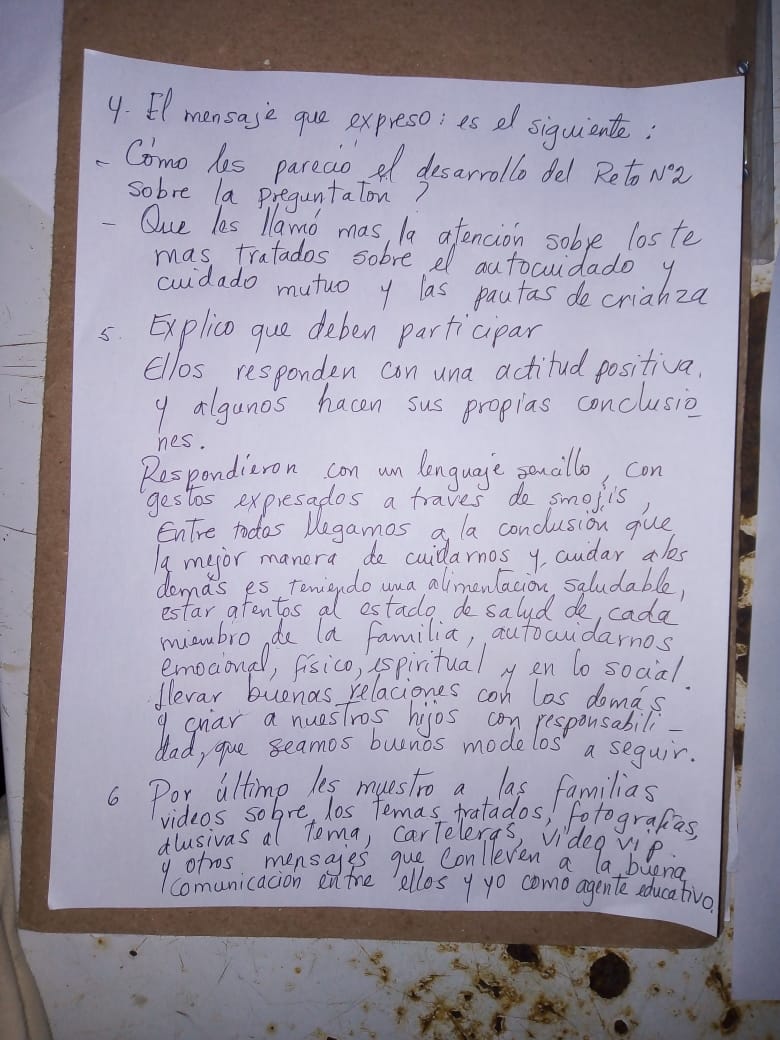 4. El mensaje que expreso: es el siguiente:
- Cómo les pareció el desarrollo del Reto N°2
sobre la preguntatón?
- Que les llamó mas la atención sobre los te
mas tratados sobre el autocuidado y
cuidado mutuo y las pautas de crianza
5. Explico que deben participar
Ellos responden con una actitud positiva.
y algunos hacen sus propias conclusio_
nes.
Respondieron con un lenguaje sencillo, con
gestos expresados a traves de smojis,
Entre todos llegamos a la conclusión que
la mejor manera de cuidarnos y cuidar a los
demás es teniendo una alimentación saludable,
estar atentos al estado de salud de cada
miembro de la familia, autocuidarnos
emocional, físico, espiritual y en lo social.
llevar buenas relaciones con los demás
y criar a nuestros hijos con responsabili-
dad, que seamos buenos modelos a seguir.
6 Por último les muestro a las familias
videos sobre los temas tratados, fotografías,
alusivas al tema, carteleras, video vip.
y otros mensajes que conlleven a la buena
comunicacion entre ellos y yo como agente educativo.